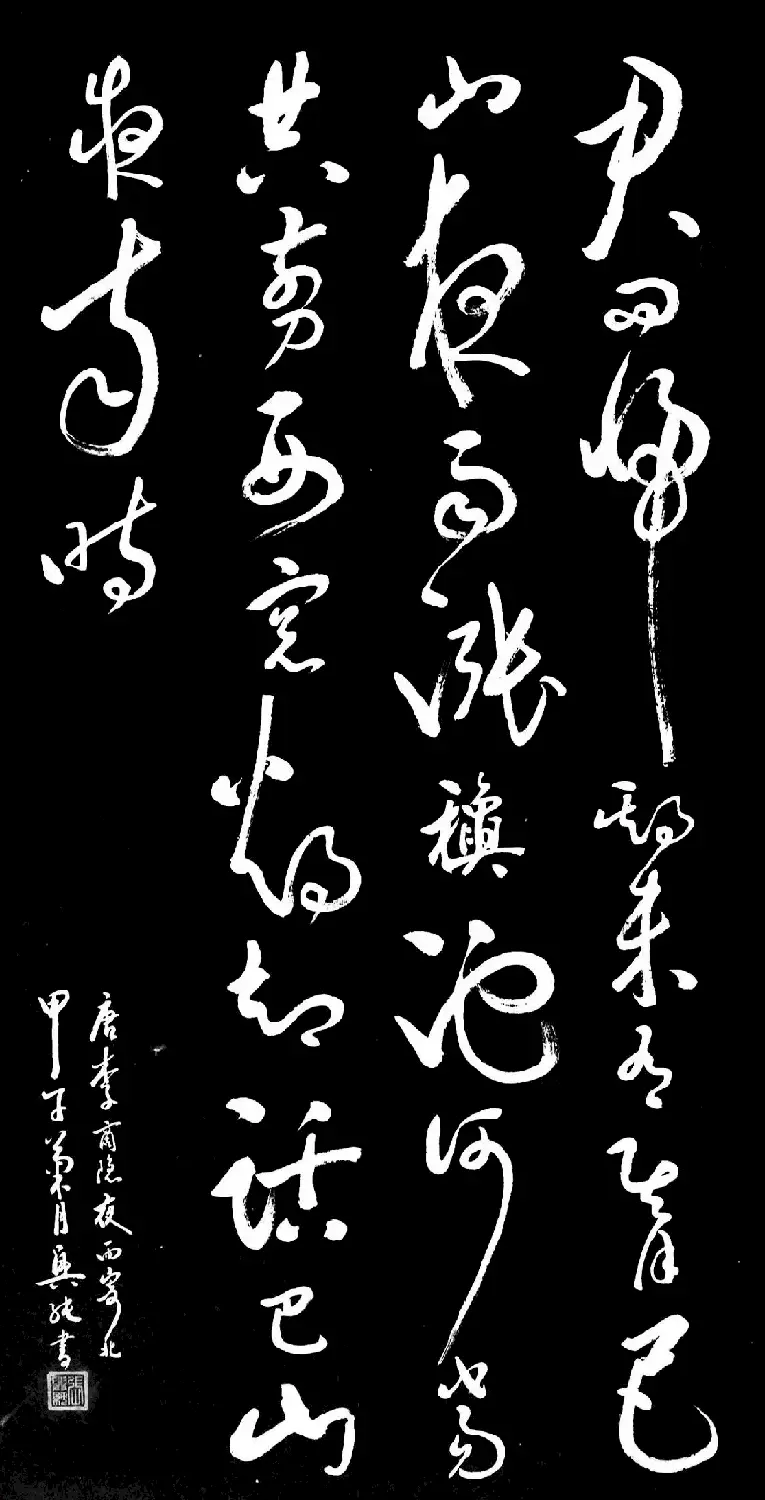 君問歸期未有期巴
山夜雨漲穐池何當
共剪西窗燭却話巴山
夜雨時
唐李商隐夜雨寄北
甲子菊月書